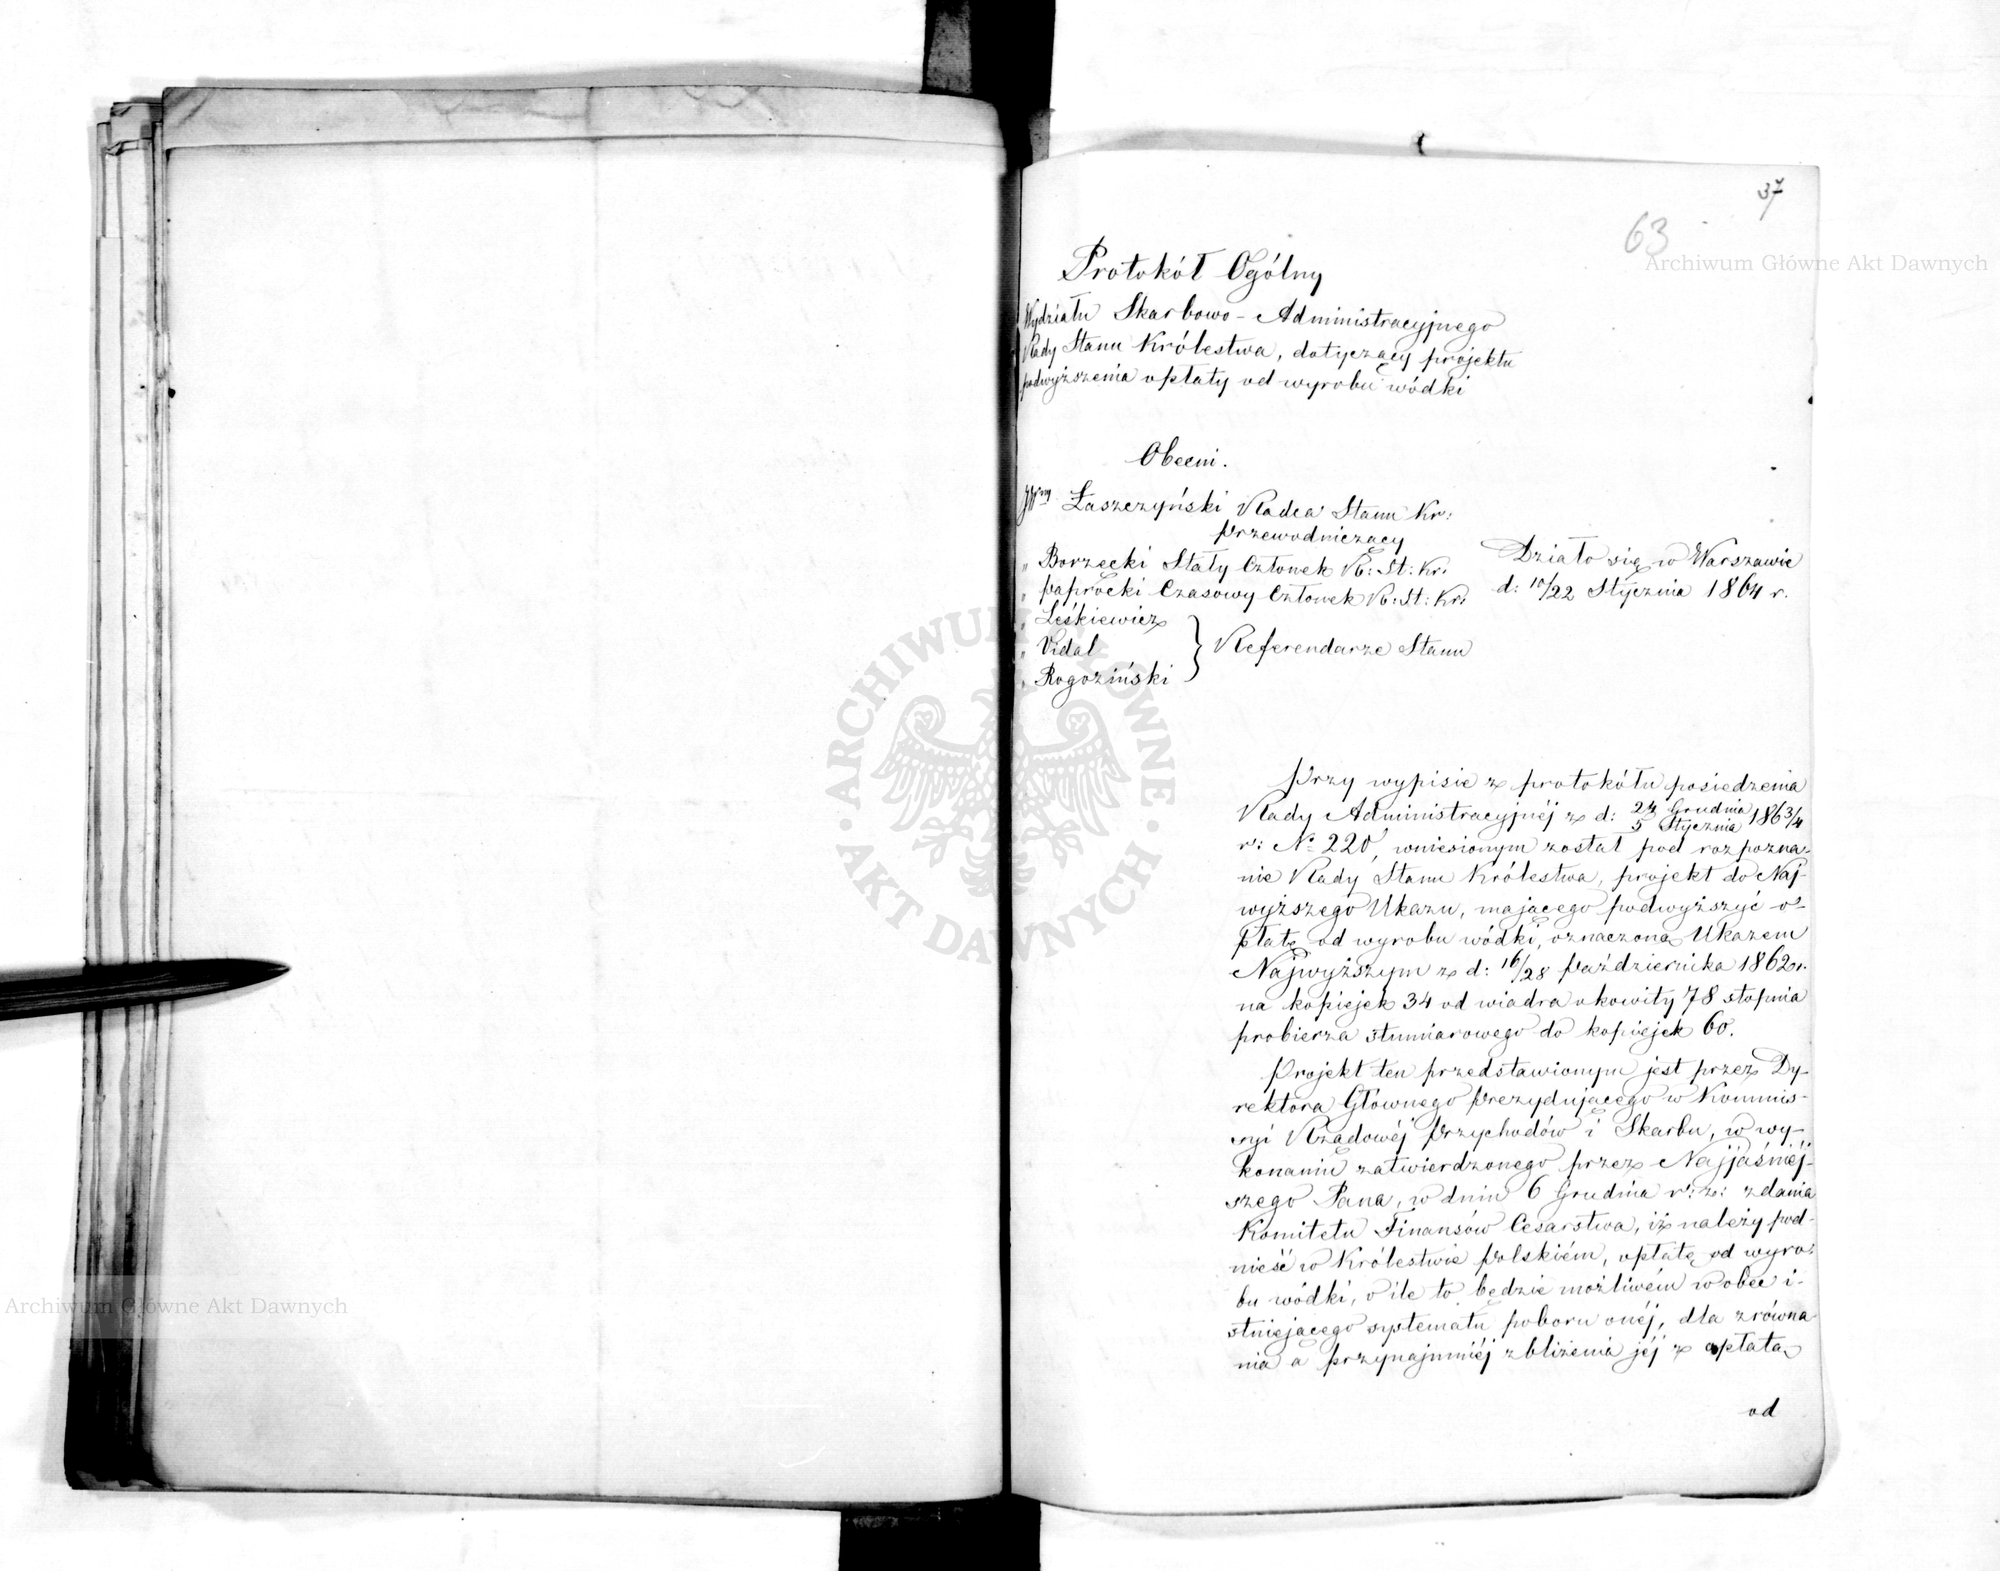 37
63
Archiwum Główne Akt Dawnych
Protokół Ogólny
Wydziału Skarbowo-Administracyjnego
Rady Stanu Królestwa, dotyczący projektu
podwyższenia opłaty od wyrobu wódki
Obecni.
JWny Łaszczyński Radca Stanu Kr:
Przewodniczący
" Borzęcki Stały Członek R: St: Kr:
" Paprocki Czasowy Członek R: St: Kr:
" Leśkiewicz
" Vidal } Referendarze Stanu
" Rogoziński
Działo się w Warszawie
d: 10/22 Stycznia 1864 r.
Przy wypisie z protokółu posiedzenia
Rady Administracyjnéj z d: 24 Grudnia/5 Stycznia 1863/4
r: No 220, wniesionym został pod rozpozna-
nie Rady Stanu Królestwa, projekt do Naj-
wyższego Ukazu, mającego podwyższyć o-
płatę od wyrobu wódki, oznaczoną Ukazem
Najwyższym z d: 16/28 Października 1862 r.
na kopiejek 34 od wiadra okowity 78 stopnia
probierza stumiarowego do kopiejek 60.
Projekt ten przedstawionym jest przez Dy-
rektora Głównego Prezydującego w Kommis-
syi Rządowéj Przychodów i Skarbu, w wy-
konaniu zatwierdzonego przez Najjaśniéj-
szego Pana, w dniu 6 Grudnia r: z: zdania
Komitetu Finansów Cesarstwa, iż należy pod-
nieść w Królestwie Polskiém, opłatę od wyro-
bu wódki, o ile to będzie możliwém wobec i-
stniejącego systematu poboru onéj, dla zrówna-
nia a przynajmniéj zbliżenia jéj z opłatą
od
ARCHIWUM GŁÓWNE AKT DAWNYCH
Archiwum Główne Akt Dawnych